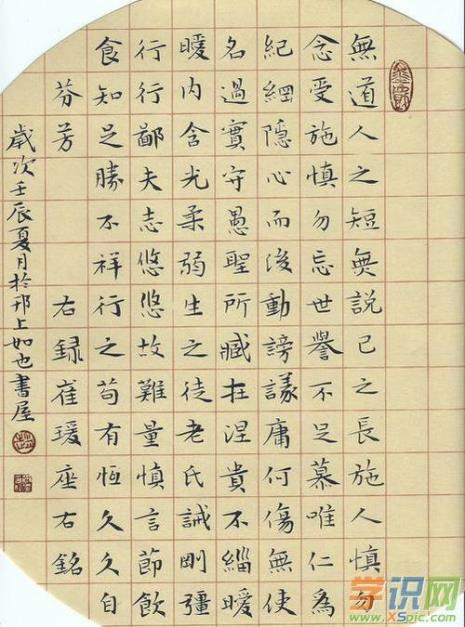 無道人之短無說己之長施人慎勿
念受施慎勿忘世譽不足慕唯仁為
紀綱隱心而後動謗議庸何傷無使
名過實守愚聖所臧在涅貴不緇曖
曖內含光柔弱生之徒老氏誡剛彊
行行鄙夫志悠悠故難量慎言節飲
食知足勝不祥行之苟有恆久久自
芬芳 右録崔瑗座右銘
歲次壬辰夏月於邗上如也書屋
学识网
XSpic.com